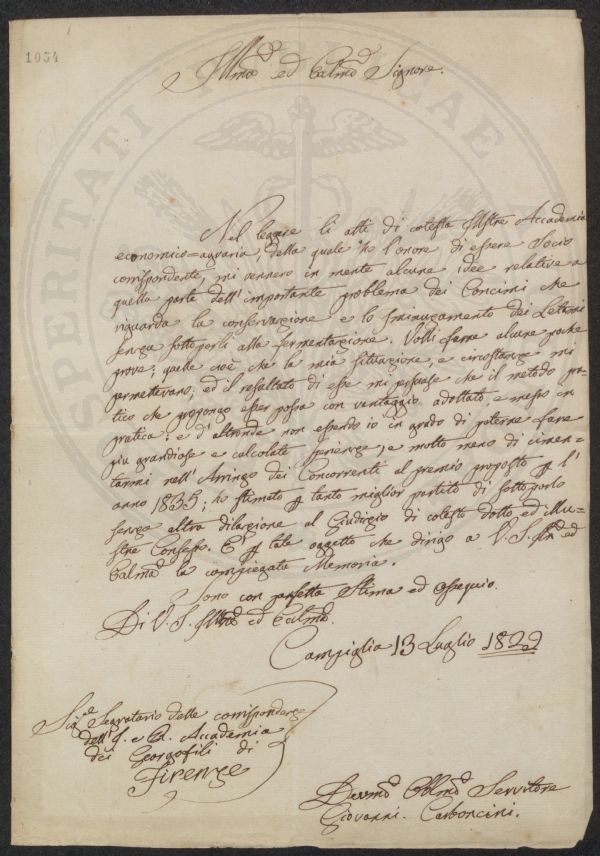 1054
Illmo ed Eccmo Signore.
Nel leggere li atti di cotesta Illustre Accademia
economico=agraria, della quale ho l'onore di essere Socio
corrispondente, mi vennero in mente alcune idee relative a
quella parte dell'importante problema dei Concimi che
riguarda la conservazione e lo sminuzzamento dei Letami
senza sottoporli alla fermentazione. Volli farne alcune poche
prove; quelle cioè che la mia situazione, e circostanze mi
permettevano; ed il resultato di esse mi persuase che il metodo pra=
tico che propongo esser possa con vantaggio adottato, e messo in
pratica: e d'altronde non essendo io in grado di poterne fare
più grandiose e calcolate sperienze, e molto meno di cimen=
tarmi nell'Arringo dei Concorrenti al premio proposto p l'
anno 1835; ho stimato p tanto miglior partito di sottoporlo
senza altra dilazione al Giudizio di cotesto dotto, ed Illu=
stre Consesso. È p tale oggetto che dirigo a V. S. Illma ed
Eccma la compiegata Memoria.
Sono con perfetta Stima ed Ossequio.
Di V. S. Illma ed Eccma.
Campiglia 13 Luglio 1829
Sigre Segretario delle corrispondenze
dell'I. e R. Accademia
dei Georgofili di
Firenze
Devmo Obbmo Servitore
Giovanni Carboncini.